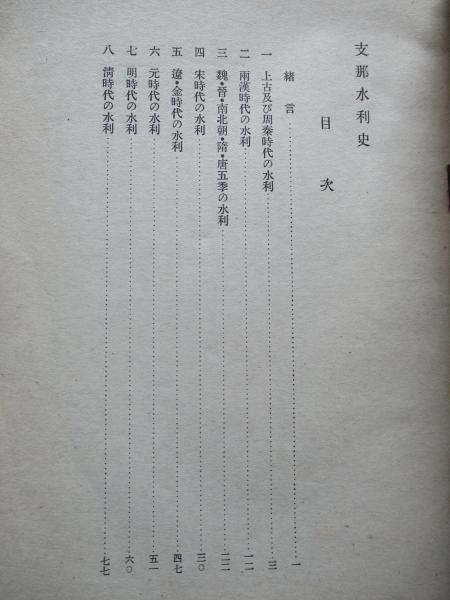 支那水利史
目次
緒言……………一
一 上古及び周秦時代の水利……………三
二 兩漢時代の水利……………一二
三 魏・晉・南北朝・隋・唐五季の水利……………二二
四 宋時代の水利……………三〇
五 遼・金時代の水利……………四七
六 元時代の水利……………五一
七 明時代の水利……………六〇
八 淸時代の水利……………七七